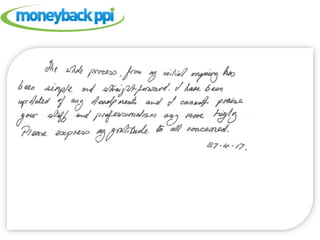 moneybackppi
The whole process, from my initial enquiry has
been simple and straightforward. I have been
updated of any developments and I cannot praise
your staff and professionalism any more highly
Please express my gratitude to all concerned.
27-4-17.